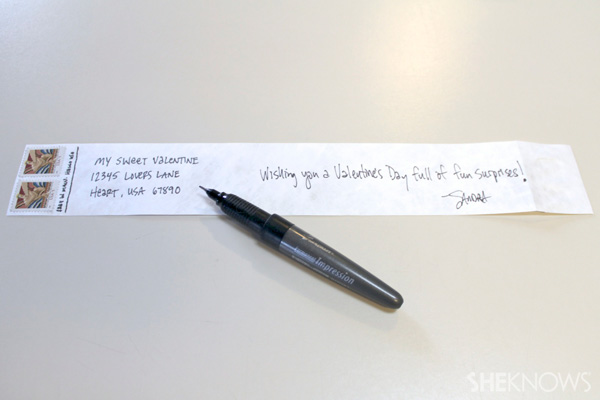 MY SWEET VALENTINE
12345 LOVERS LANE
HEART, USA 67890
Wishing you a Valentine's Day full of fun surprises!
SANDRA
Impression
SHEKNOWS